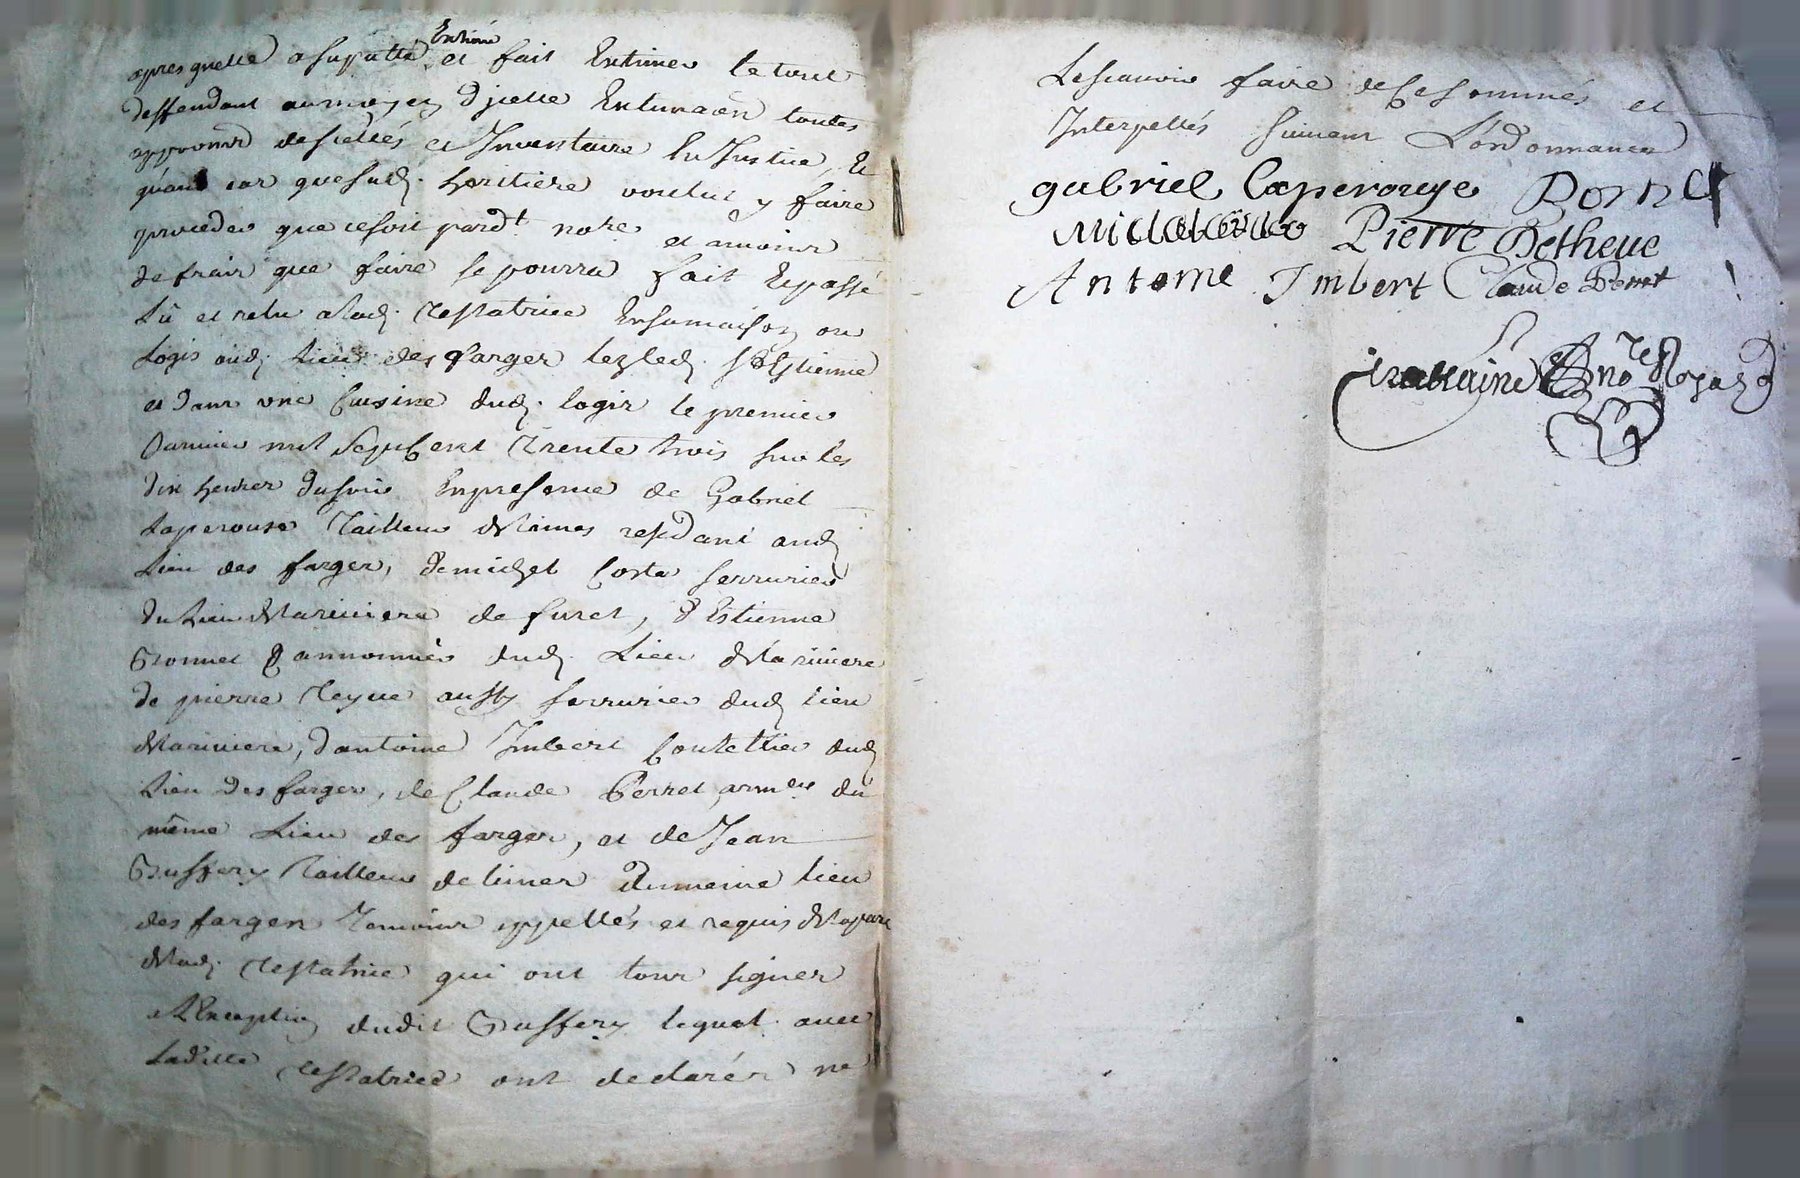 apres quelle a suputté Estimé et fait Estimer le tout
deffendant au moyen d'jcelle Estimaôn toutes
appôon de scellés et Inventaire En Justice, Et
q'uand cas que sad. heritiere voulut y faire
proceder que ce soit par dt. notre et a moins
de frais que faire se pourra fait Et passé
Lû et relu a lad. Testatrice En sa maison ou
Logis aud. Lieu des farges lez led. St Estienne
et dans une Cuisine dud. logis le premier
Janvier mil Sept Cent Trente trois sur les
dix heures du soir En presence de Gabriel
Laperouse Tailleur de limes residant aud.
Lieu des farges, de michel Coste serrurier
du Lieu de la riviere de furet, d'Estienne
Bonnet Cannonnier dud. Lieu de la riviere
de pierre Teyue aussy serrurier dud. lieu
de la riviere, d'antoine Imbert Coutellier dud.
Lieu des farges, de Claude Perret, arm.er du
même Lieu des farges, et de Jean
Bussery Tailleur de limes du meme lieu
des farges Temoins appellés et requis de la part
de lad. Testatrice qui ont tous signer
a l'Exception dudit Bussery lequel avec
Laditte Testatrice ont declarér ne
Le scauoir faire de Ce sommés et
Interpellés suivant L'ordonnance
gabriel Laperouse Bonnet
Pierre Detheue
Antoine Imbert Claude Perret
not.re Royal